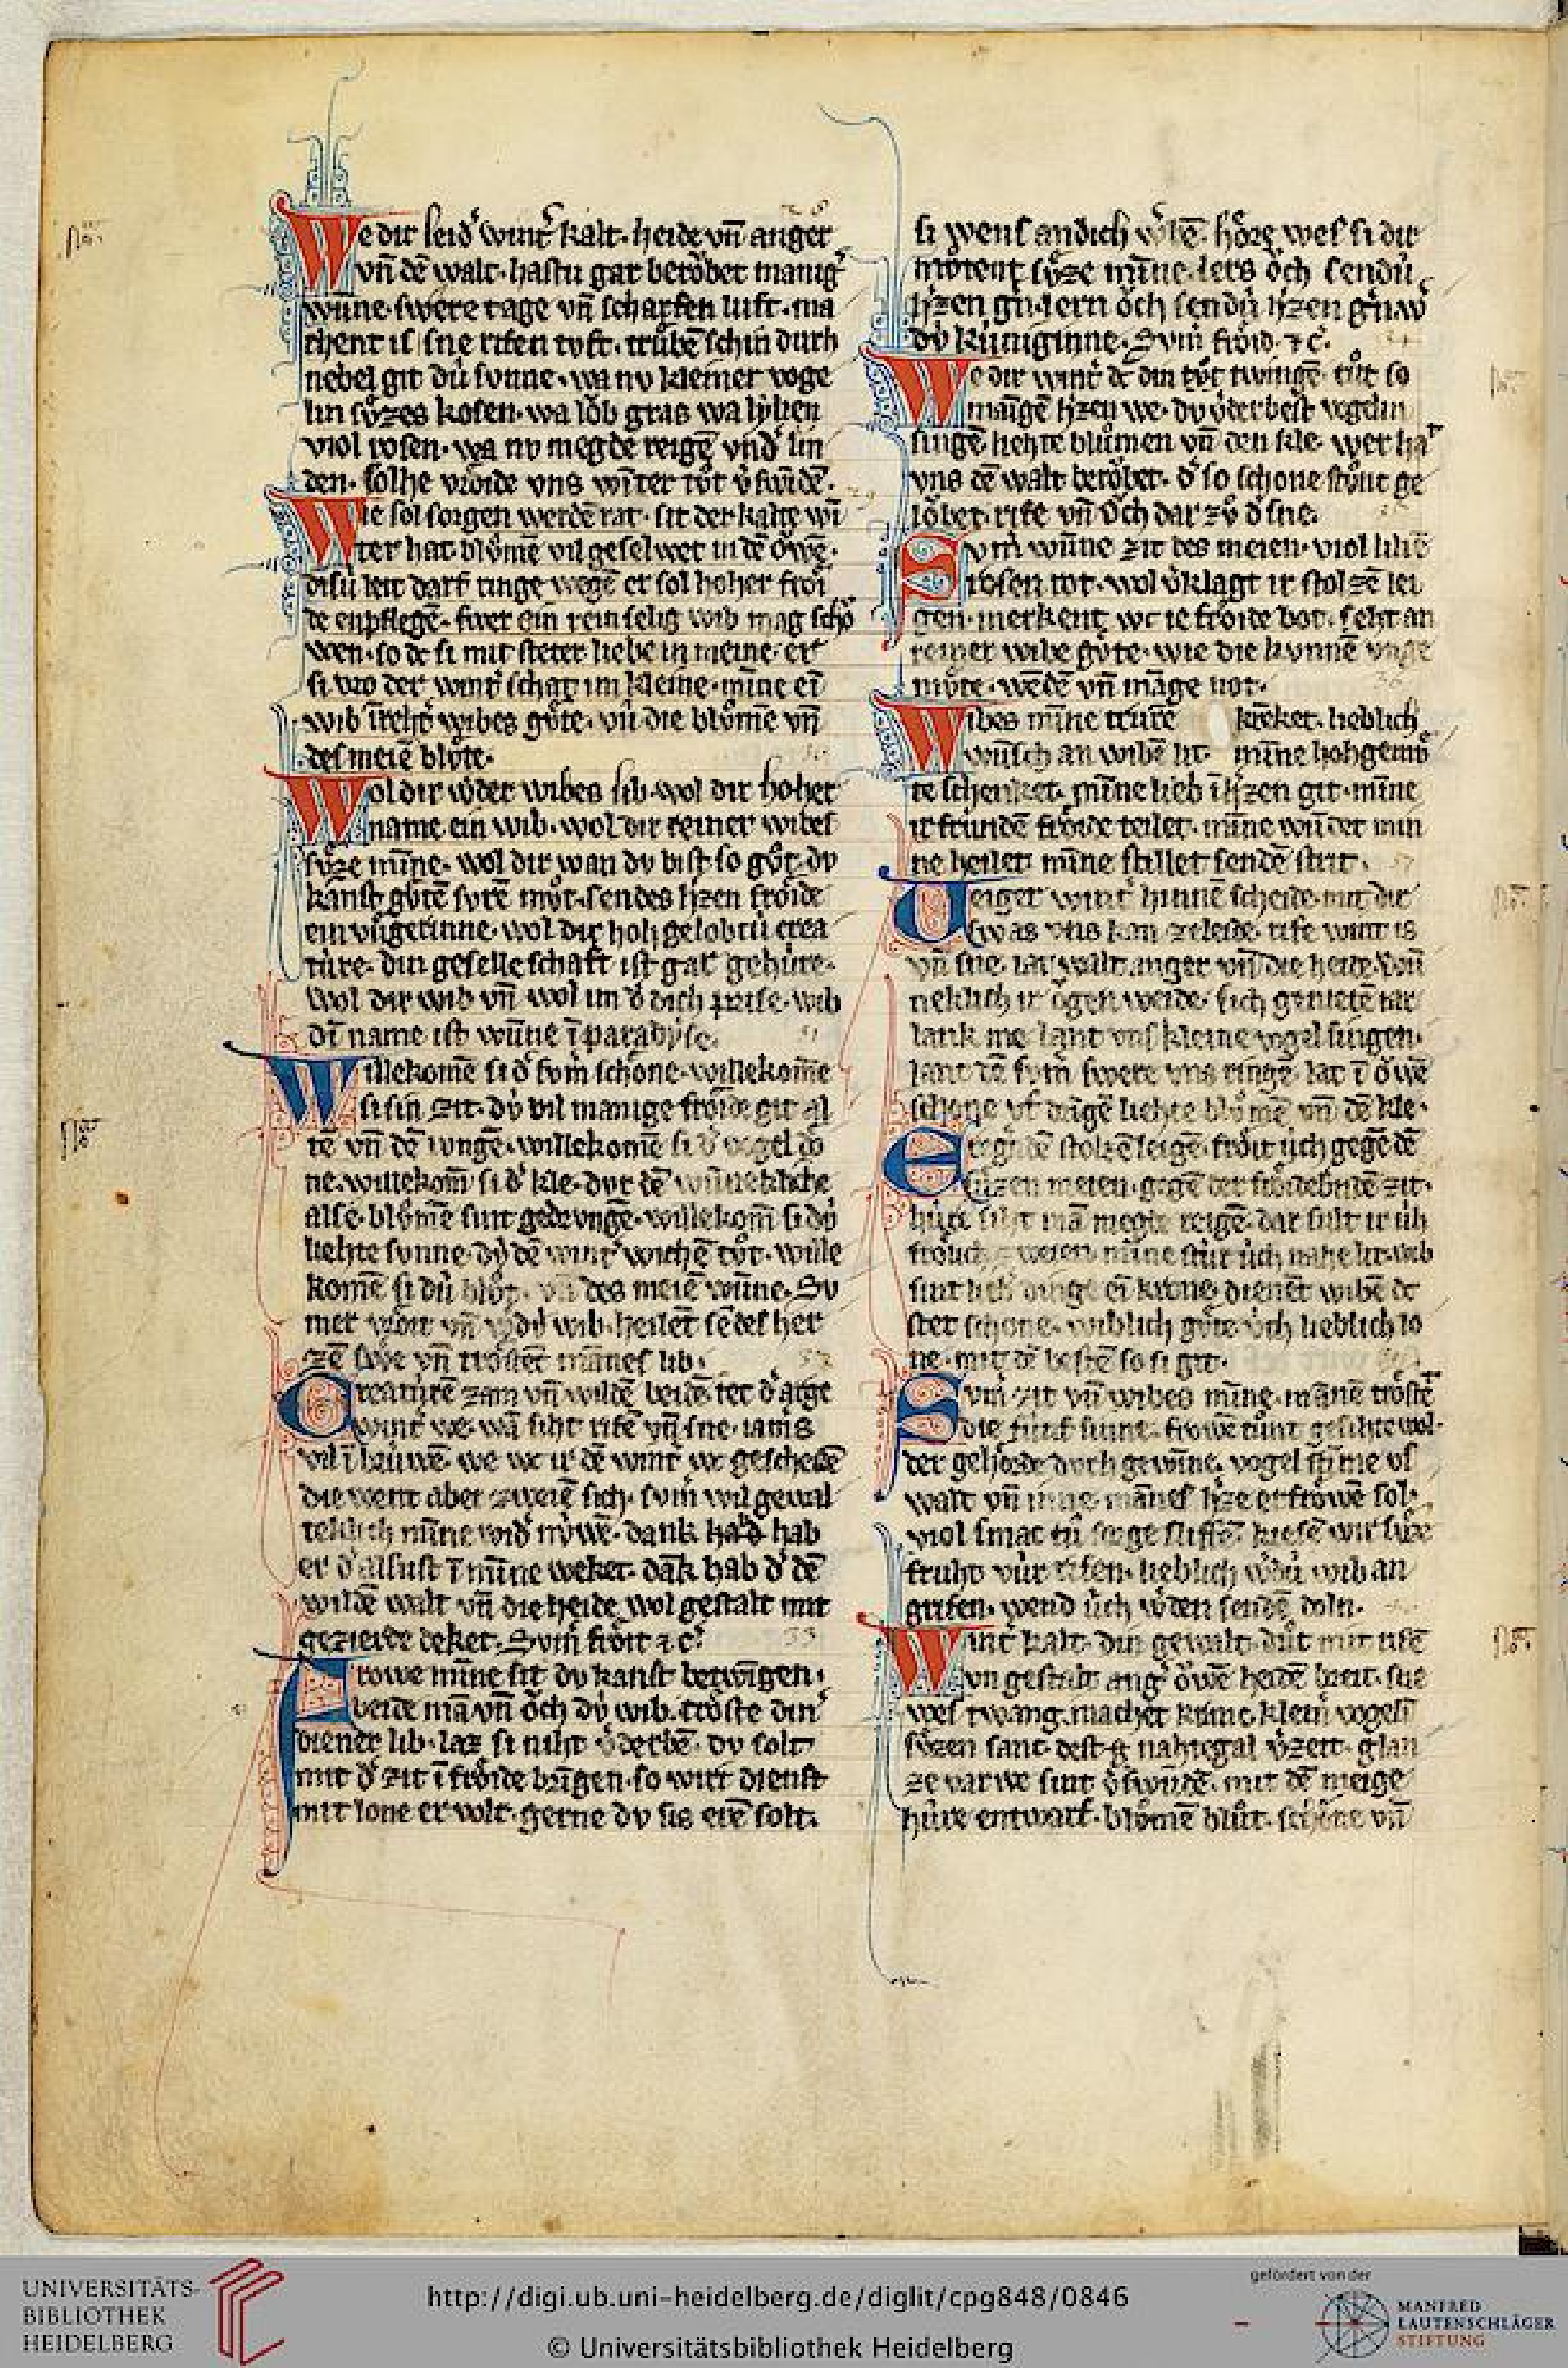 We dir leid wint kalt· heide vn̄ anger
vn̄ dē walt· hastu gar berͦbet manig
wūne· swere tage vn̄ scharfen luft· ma
chent is sne rifen toft· trůbē schin durh
nebel git dú sonne· wa nv kleiner voge
lin sůzes kosen· wa lͦb gras wa lylien
viol rosen· wa nv megde reigē vnd lin
den· solhe vrͦide vns winter tůt vswīdē·
Wie sol sorgen werdē rat· sit der kalte wī
ter hat blůmē vil geselwet in dē ͦwē·
disú leit darf ringe wegē er sol hoher frͦi
de enpflegē· swer ein rein selig wib mag schͦ
wen· so dc si mit steter liebe in meine· er
si vro der wint schat im kleine· mīne ein
wib vn̄ die blůmē vn̄
des meiē blůte·
Wol dir wͦder wibes lib· wol dir hoher
name ein wib· wol dir reiner wibes
sůze mīne· wol dir wan dv bist so gůt· dv
kanst gůtē můt· sendes hzen frͦide
ein· wol dir hoh gelobtú crea
túre· din geselleschaft ist gar gehúre·
wol dir wib vn̄ wol im d dich prise· wib
dī name ist wūne ī paradyse·
Willekomē si d som schͦne· willekomē
si sin zit· dú vil manige frͦide git al
tē vn̄ dē iungē· willekomē si d vogel dͦ
ne· willekom si d kle· dur dē wūnekliche
alse· blůmē sint gedrvngē· willekom si dú
liehte sonne· dú dē wint wichē tůt· wille
komē si dú blůt· vn̄ des meiē wūne· Sv
mer wib· heilēt sēdes her
zē vn̄ trͦstēt mānes lib·
Creaturē zam vn̄ wildē beidē tet d arge
wint we· wā siht rifē vn̄ sne· iamͦs
vil ī
die went aber zweiē sich· som wil gewal
teklich mīne· dank hab
er d alsust ī mīne weket· dāk hab d dē
wildē walt vn̄ die heide wol gestalt mit
gezierde deket· Som frͦit ⁊ c̄·
Frowe mīne sit dv kanst betwīgen·
beide mā vn̄ ͦch dú wib· trͦste din
diener lib· laz si niht vderbē· dv solt
mit d zit ī frͦide brīgen· so wirt dienst
mit lone er volt· gerne dv sis erē solt·
si an dich hͦre wes si dir
mͦtent sůze mīne· ͦch sendú
hzen ͦch sendú hzen
dú kúniginne· Som frͦid· ⁊ c̄·
We dir wint dc din twingē· tůt so
māgē hzen we· dv vderbest vogelin
singē liehte blůmen vn̄ den kle· wer hat
vns dē walt berͦbet· d so schone stůnt ge
lͦbet· rife vn̄ ͦch dar zů d sne·
Som wūne zit des meien· viol lilie
rosen rot· wol vklagt ir stolzē lei
gen· merkent· frͦide bot· seht an
reiner wibe gůte· wie die kvnnē
mͦte· wēdē vn̄ māge not·
Wibes mīne trure krēket· lieblich
wūsch an wibē lit· mīne hohgemͦ
te schenket· mīne lieb ī hzen git· mīne
ir frúndē frͦide teilet· mīne wūder min
ne heilet· mīne stillet sendē strit·
Veiger wint hinnē scheide· mit dir
swas vns kan· rife wint is
vn̄ sne· lat walt anger vn̄ die heide
neklich ir ͦgen weide·
lank me· lant vns kleine vogel singen·
lant dē som swere vns ringē· lat ī ͦwē
schone vf drīgē liehte blůmē vn̄ dē kle·
Er stolzē leigē· frͦit úch gegē dē
sůzen meien· gegē der zit·
húre siht mā megde reigē· dar sult ir úch
· mīne úch nahe lit· wib
sint krone· dienēt wibē dc
stet schone· wiblich gůte ͦch lieblich lo
ne· mit dē bestē so si git·
Som zit vn̄ wibes mīne· mānē trͦstet
die fúnf sinne· frowē
der gehͦrde dvrh gewīne· vogel stīme vs
walt vn̄ inne· mānes hze erfrͦwē sol·
viol smac
fruht vúr rifen· lieblich wib an
grifen· wend úch sendē doln·
Wint kalt· din gewalt· důt mit rifē
vn gestalt· ang ͦwē heidē breit· sne
wes twang· machet kleī vogelī
sůzen sanc· nahtegal· glan
ze varwe sint· mit dē meige
húre entwarf· blůmē blůt· schͦne vn̄
UNIVERSITÄTS-
BIBLIOTHEK
HEIDELBERG
http://digi.ub.uni-heidelberg.de/diglit/cpg848/0846
© Universitätsbibliothek Heidelberg
gefördert von der
MANFRED
LAUTENSCHLÄGER
STIFTUNG